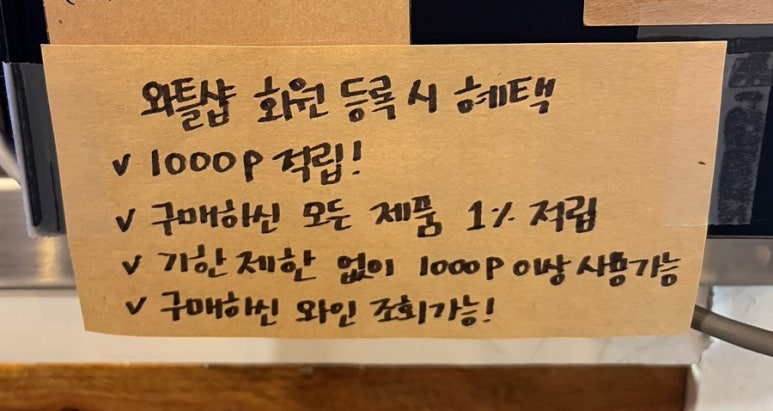 와틀샵 회원 등록 시 혜택
v 1000P 적립!
v 구매하신 모든 제품 1% 적립
v 기한 제한 없이 1000P 이상 사용가능
v 구매하신 와인 조회가능!